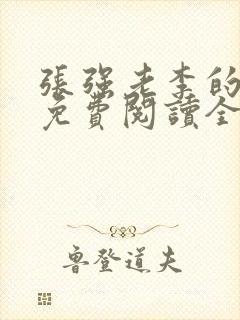 張强老李的
免費閱讀全
魯登道夫